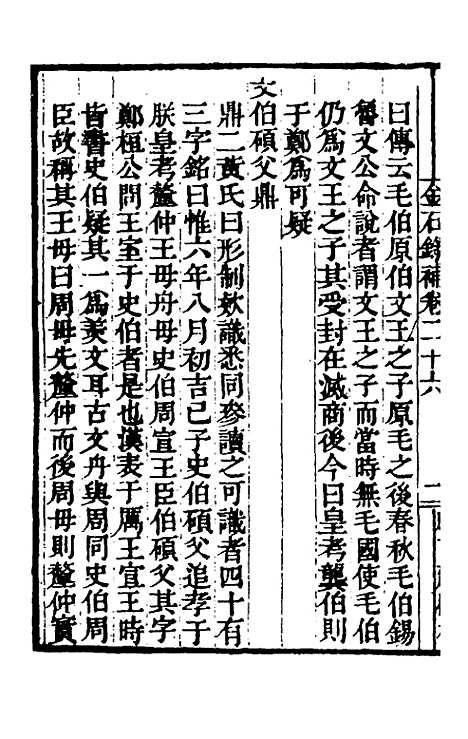 金石錄補卷二十六
二
曰傳云毛伯原伯文王之子原毛之後春秋毛伯錫
魯文公命說者謂文王之子而當時無毛國使毛伯
仍爲文王之子其受封在滅商後今曰皇考龔伯則
于鄭爲可疑
史伯碩父鼎
鼎二黃氏曰形制欵識悉同叅讀之可識者四十有
三字銘曰惟六年八月初吉己子史伯碩父追孝于
朕皇考釐仲王母舟母史伯周宣王臣伯碩父其字
鄭桓公問王室于史伯者是也漢表于厲王宣王時
皆書史伯疑其一爲羨文耳古文舟與周同史伯周
臣故稱其王母曰周母先釐仲而後周母則釐仲實